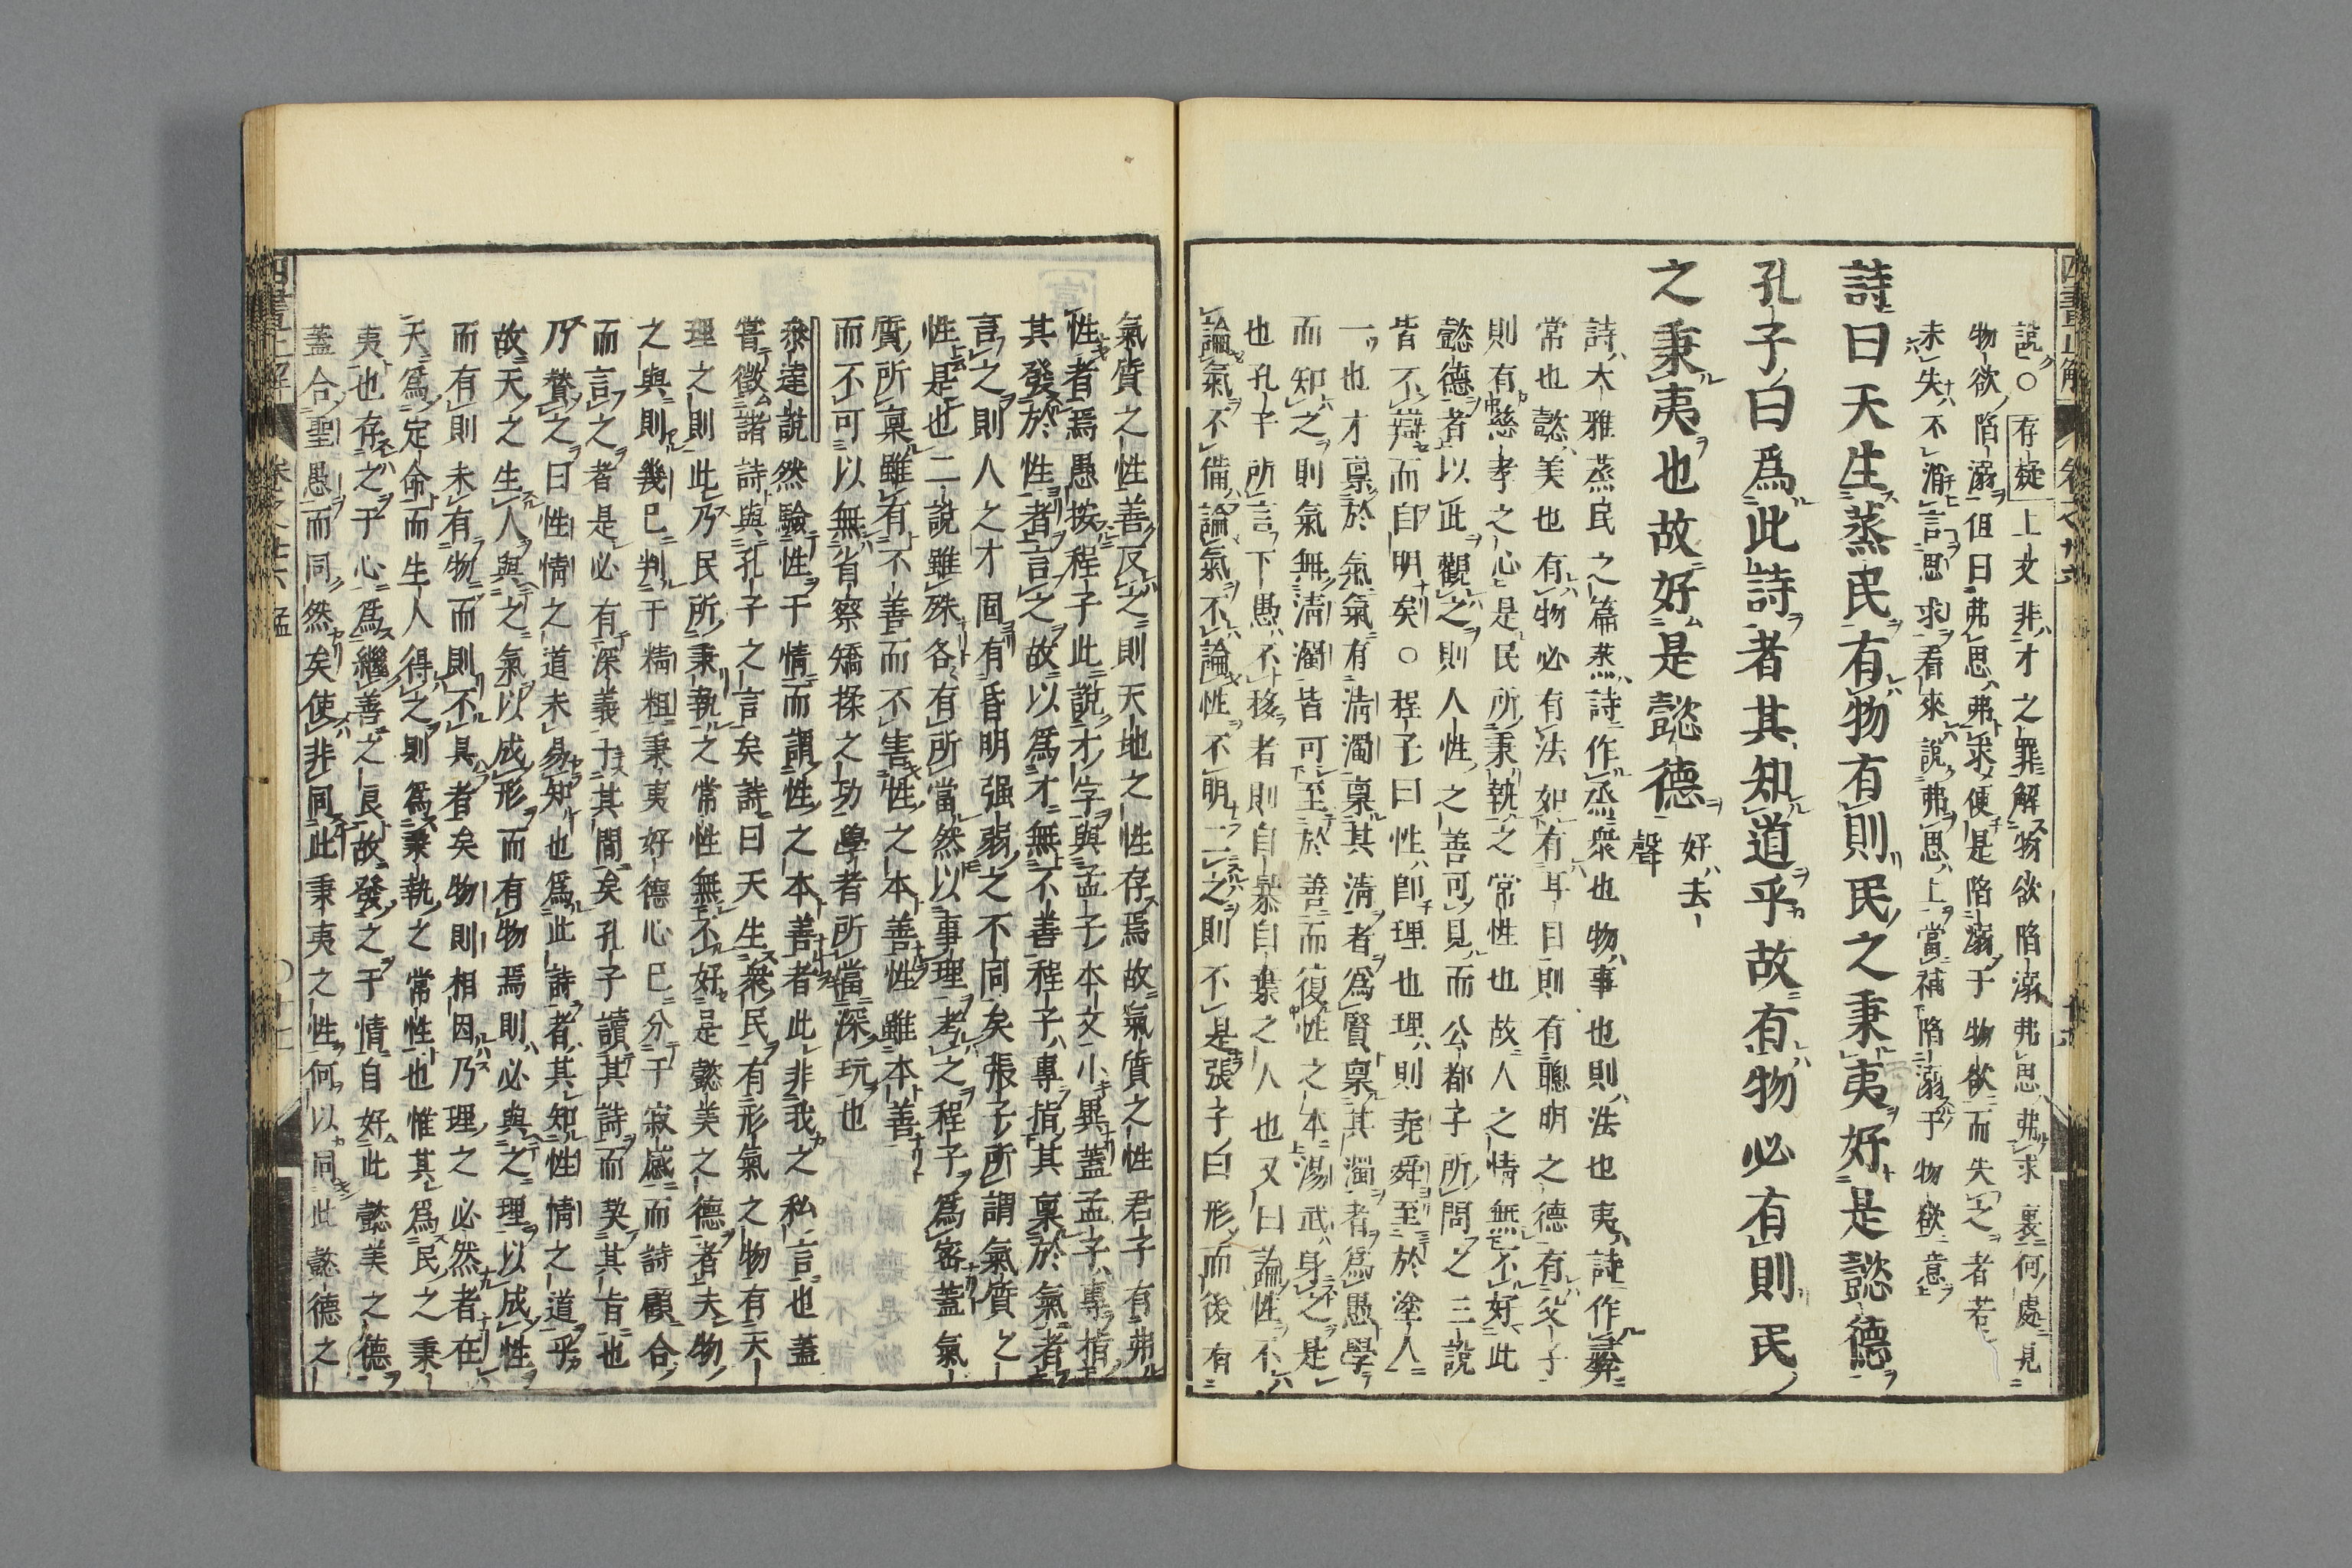 說○存疑上文非才之罪解物欲陷溺弗思弗求裏何處見
物欲陷溺但曰弗思弗求便是陷溺于物欲而失之者若
未失不消言思求看來說弗思上當補陷溺于物欲意
詩曰天生蒸民有物有則民之秉夷好是懿德
孔子曰爲此詩者其知道乎故有物必有則民
之秉夷也故好是懿德
好去
聲
詩大雅蒸民之篇蒸詩作烝衆也物事也則法也夷詩作彝
常也懿美也有物必有法如有耳目則有聰明之德有父子
則有慈孝之心是民所秉執之常性也故人之情無不好此
懿德者以此觀之則人性之善可見而公都子所問之三說
皆不辯而自明矣○程子曰性卽理也理則堯舜至於塗人
一也才禀於氣氣有清濁禀其清者爲賢禀其濁者爲愚學
而知之則氣無清濁皆可至於善而復性之本湯武身之是
也孔子所言下愚不移者則自暴自棄之人也又曰論性不
論氣不備論氣不論性不明二之則不是張子曰形而後有
氣質之性善反之則天地之性存焉故氣質之性君子有弗
性者焉愚按程子此說才字與孟子本文小異蓋孟子專指
其發於性者言之故以爲才無不善程子專指其禀於氣者
言之則人之才固有昏明强弱之不同矣張子所謂氣質之
性是也二說雖殊各有所當然以事理考之程子爲密蓋氣
質所禀雖有不善而不害性之本善性雖本善
而不可以無省察矯揉之功學者所當深玩也
參達說然驗性于情而謂性之本善者此非我之私言也蓋
嘗徵諸詩與孔子之言矣詩曰天生衆民有形氣之物有天
理之則此乃民所秉執之常性無不好是懿美之德者夫物
之與則幾已判于精粗秉夷好德心已分于寂感而詩顧合
而言之者是必有深義于其間矣孔子讀其詩而契其旨也
乃贊之曰性情之道未易知也爲此詩者其知性情之道乎
故天之生人與之氣以成形而有物焉則必與之理以成性
而有則未有物而則不具者矣物則相因乃理之必然者在
天爲定命而生人得之則爲秉執之常性也惟其爲民之秉
夷也存之于心爲繼善之良故發之于情自好此懿美之德
蓋合聖愚而同然矣使非同此秉夷之性何以同此懿德之